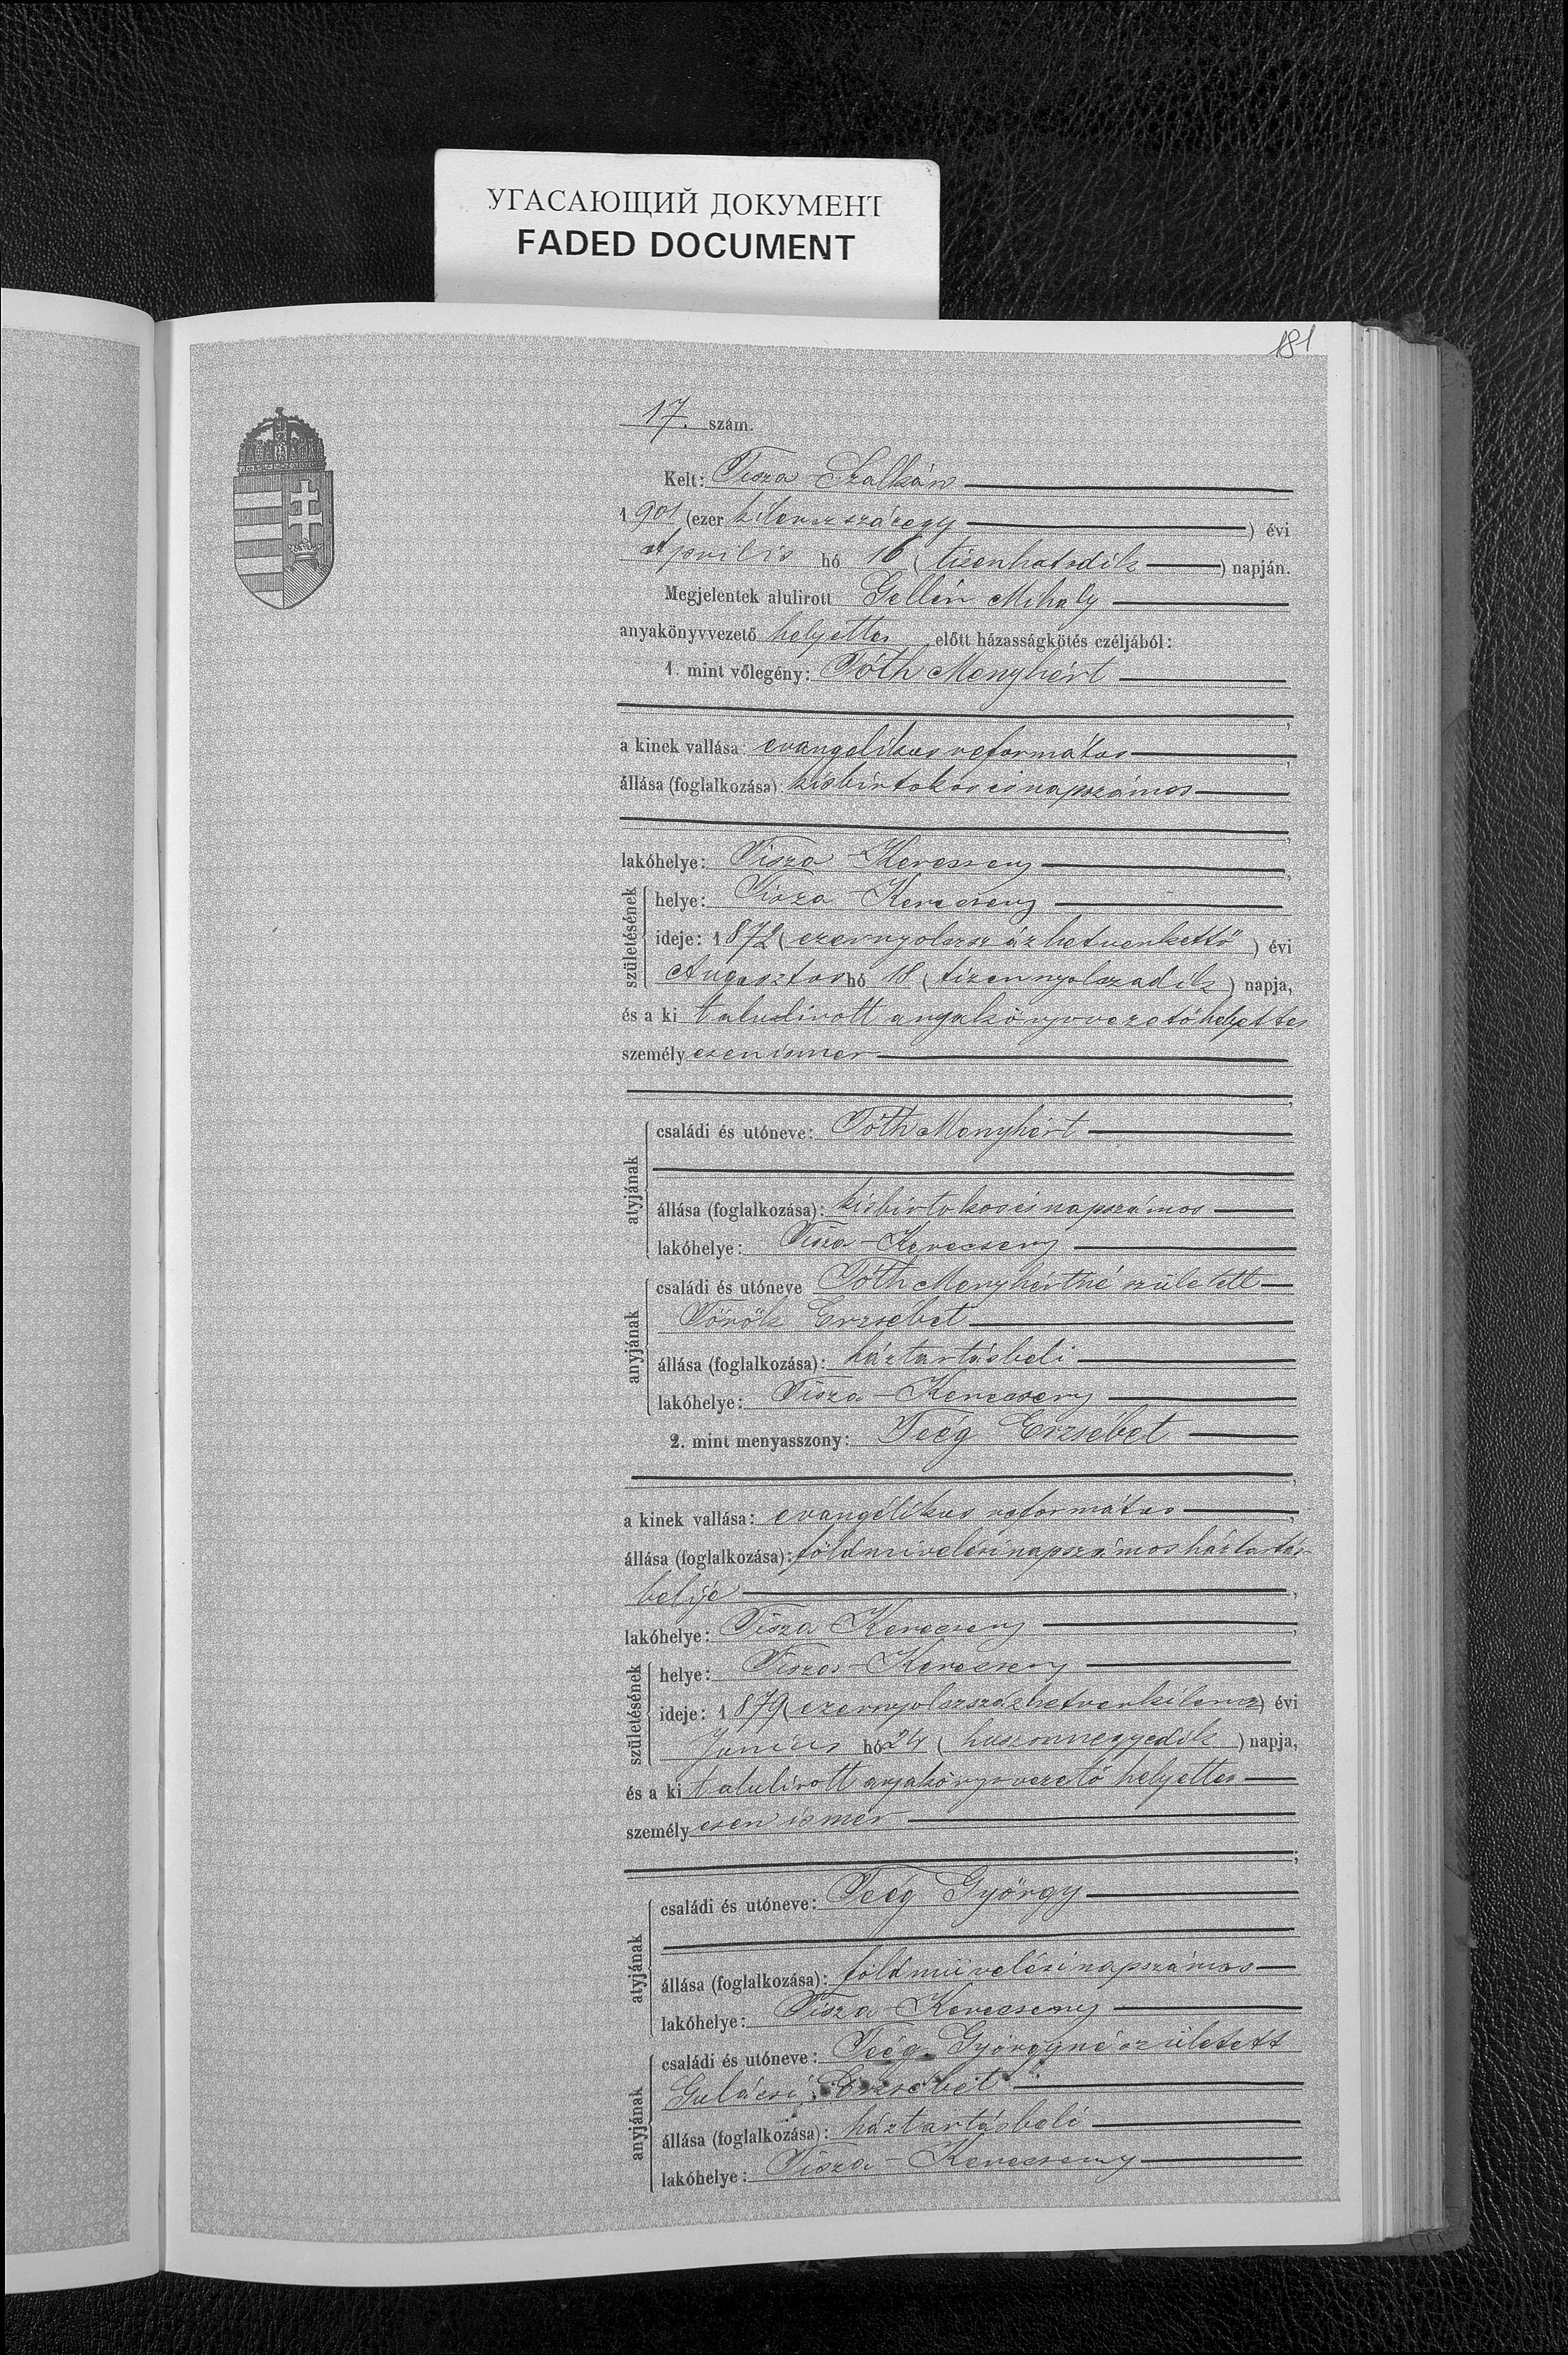 УГАСАЮЩИЙ ДОКУМЕНТ
FADED DOCUMENT
181
17. szám.
Kelt: Tisza-Szalkán
1901 (ezer kilenczszázegy) évi
Április hó 16 (tizenhatodik) napján.
Megjelentek alulirott Gellén Mihály
anyakönyvvezető helyettes előtt házasságkötés czéljából:
1. mint vőlegény: Tóth Menyhért
a kinek vallása: evangelikus református
állása (foglalkozása): kisbirtokos és napszámos
lakóhelye: Tisza-Kerecseny
születésének
helye: Tisza-Kerecseny
ideje: 1872 (ezernyolczszázhetvenkettő) évi
Augusztus hó 18 (tizennyolczadik) napja,
és a ki t alulirott anyakönyvvezető helyettes
személyesen ismer
atyjának
családi és utóneve: Tóth Menyhért
állása (foglalkozása): kisbirtokos és napszámos
lakóhelye: Tisza-Kerecseny
anyjának
családi és utóneve Tóth Menyhértné született
Török Erzsébet
állása (foglalkozása): háztartásbeli
lakóhelye: Tisza-Kerecseny
2. mint menyasszony: Teég Erzsébet
a kinek vallása: evangélikus református
állása (foglalkozása): földmivelési napszámos háztartás-
belije
lakóhelye: Tisza Kerecseny
születésének
helye: Tisza-Kerecseny
ideje: 1879 (ezernyolczszázhetvenkilencz) évi
Junius hó 24 (huszonnegyedik) napja,
és a ki t alulirott anyakönyvvezető helyettes
személyesen ismer
atyjának
családi és utóneve: Teég György
állása (foglalkozása): földmüvelési napszámos
lakóhelye: Tisza-Kerecseny
anyjának
családi és utóneve: Teég Györgyné született
Gulácsi Erzsébet
állása (foglalkozása): háztartásbeli
lakóhelye: Tisza-Kerecseny